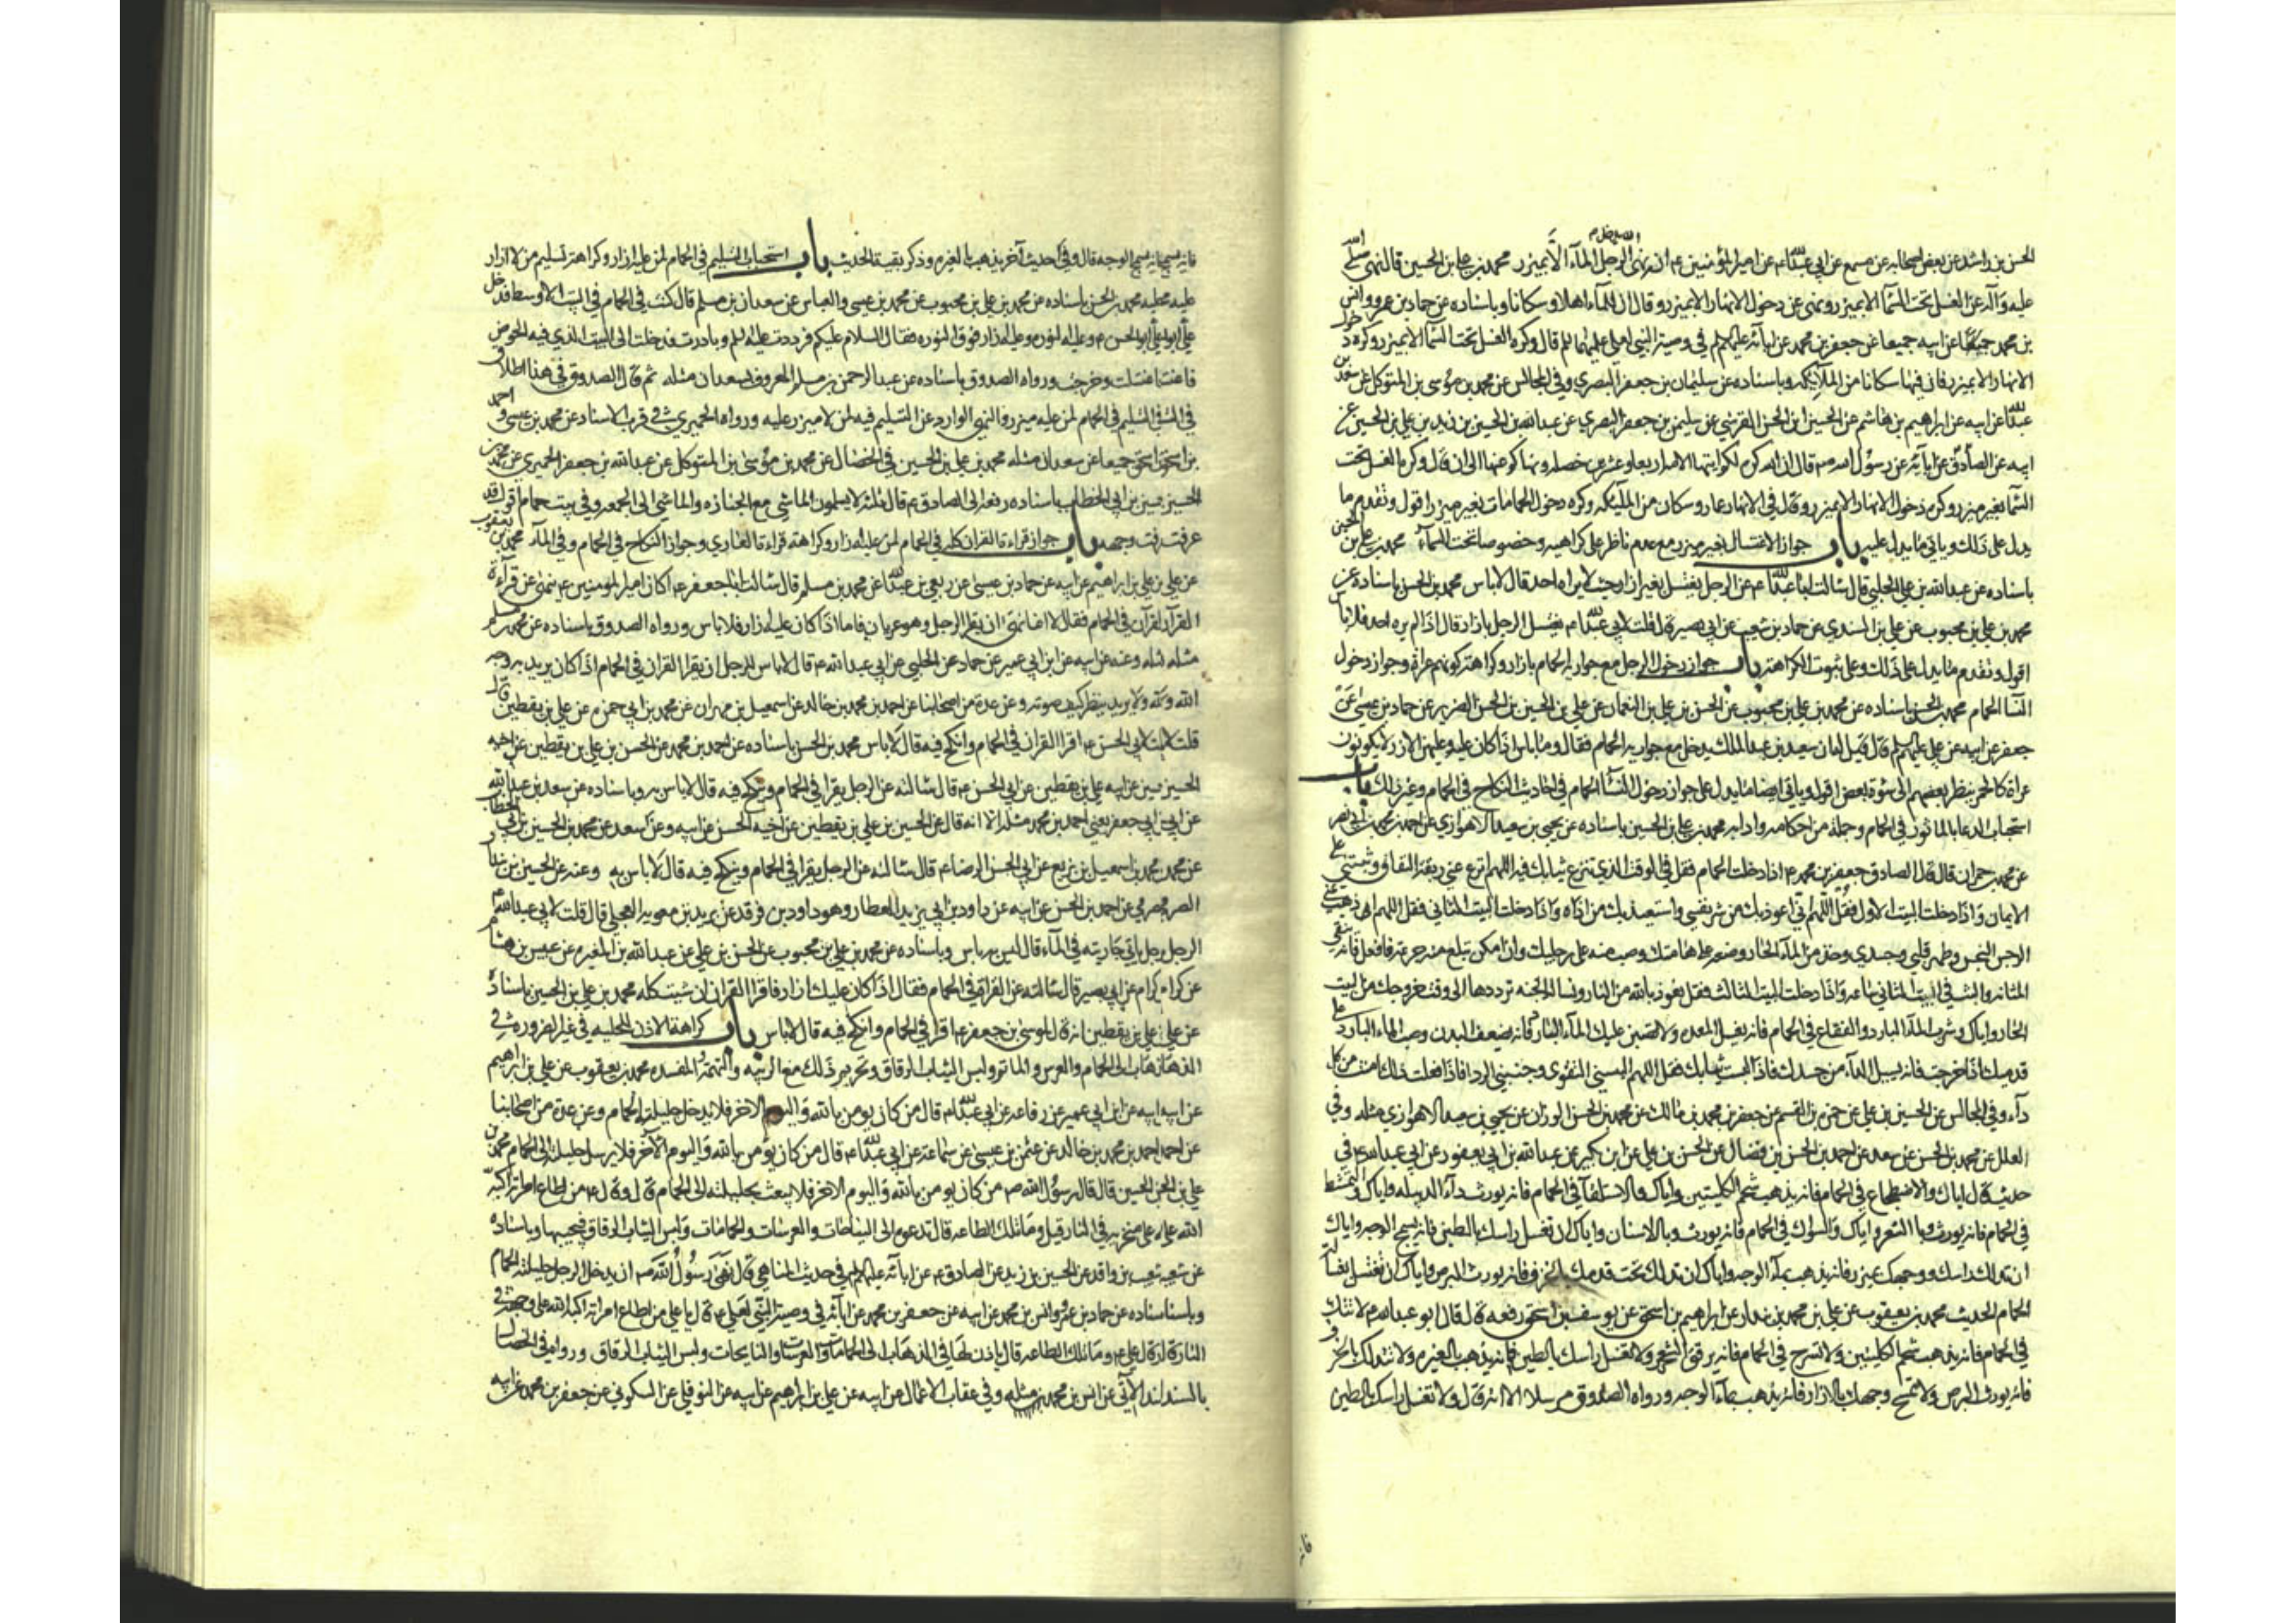 الحسن بن راشد عن بعض اصحابه عن مسمع عن ابي عبدالله ع عن امير المؤمنين ع انه نهى ان يدخل الرجل الماء الا بميزر محمد بن علي بن الحسين قال نهى صلى الله
عليه وآله عن الغسل تحت السماء الا بميزر ونهى عن دخول الانهار الا بميزر وقال ان للماء اهلا وسكانا وباسناده عن حماد بن عمرو وانس
بن محمد جميعا عن ابيه جميعا عن جعفر بن محمد عن ابائه عليهم السلم في وصية النبي لعلي عليهما السلم قال وكره الغسل تحت السماء الا بميزر وكره دخول
الانهار الا بميزر فان فيها سكانا من الملائكة وباسناده عن سليمان بن جعفر البصري وفي المجالس عن محمد بن موسى بن المتوكل عن سعد بن
عبدالله عن ابيه عن ابراهيم بن هاشم عن الحسين ابن الحسن القرشي عن سليمن بن جعفر البصري عن عبدالله بن الحسين بن زيد بن علي بن الحسين عن
ابيه عن الصادق عن ابائه عن رسول الله ص قال ان الله كره لكم ايتها الامة اربعا وعشرين خصلة ونهاكم عنها الى ان قال وكره الغسل تحت
السماء بغير ميزر وكره دخول الانهار الا بميزر وقال في الانهار عمار وسكان من الملائكه وكره دخول الحمامات بغير ميزر اقول وتقدم ما
يدل على ذلك وياتي ما يدل عليه باب جواز الاغتسال بغير ميزر مع عدم ناظر على كراهيه وخصوصا تحت السماء محمد بن علي بن الحسين
باسناده عن عبدالله بن علي الحلبي قال سالت ابا عبدالله ع عن الرجل يغتسل بغير ازار حيث لا يراه احد قال لا باس محمد بن الحسن باسناده عن
محمد بن علي بن محبوب عن علي بن السندي عن حماد بن شعيب عن ابي بصير قال قلت لابي عبدالله ع يغتسل الرجل بازار قال اذا لم يره احد فلا باس
اقول وتقدم ما يدل على ذلك وعلى ثبوت الكراهة باب جواز دخول الرجل مع جواريه الحمام بازار وكراهة كونهم عراة وجواز دخول
النسا الحمام محمد بن الحسن باسناده عن محمد بن علي بن محبوب عن الحسن بن علي بن النعمان عن علي بن الحسين بن الحسن الضرير عن حماد بن عيسى عن
جعفر عن ابيه عن علي عليهم السلم قال قيل له ان سعيد بن عبد الملك يدخل مع جواريه الحمام فقال وما باس اذا كان عليه وعليهن الازر لا يكونون
عراة كالحمر ينظر بعضهم الى سوءة بعض اقول وياتي ايضا ما يدل على جواز دخول النسآ الحمام في احاديث النكاح في الحمام وغير ذلك باب
استحباب الدعا بالماثور في الحمام وجملة من احكامه وادابه محمد بن علي بن الحسين باسناده عن يحيى بن سعيد الاهوازي عن احمد بن محمد بن ابي نصر
عن محمد بن حمران قال قال الصادق جعفر بن محمد ع اذا دخلت الحمام فقل في الوقت الذي تنزع ثيابك فيه اللهم انزع عني ربقة النفاق وثبتني على
الايمان واذا دخلت البيت الاول فقل اللهم اني اعوذ بك من شر نفسي واستعيذ بك من اذاه واذا دخلت البيت الثاني فقل اللهم اذهب عني
الرجس النجس وطهر قلبي وجسدي وخذ من الماء الحار وضعه على هامتك وصب منه على رجليك وان امكن تبلع منه جرعة فافعل فانه ينقي
المثانه والبث في البيت الثاني ساعه واذا دخلت البيت الثالث فقل نعوذ بالله من النار ونساله الجنه ترددها الى وقت خروجك من البيت
الحار واياك وشرب المآ البارد والفقاع في الحمام فانه يفسد المعده ولا تصبن عليك المآء البارد فانه يضعف البدن وصب الماء البارد على
قدميك اذا خرجت فانه يسل الداء من جسدك فاذا لبست ثيابك فقل اللهم البسني التقوى وجنبني الردا فاذا فعلت ذلك امنت من كل
داء وفي المجالس عن الحسين بن علي عن حمزه بن القسم عن جعفر بن محمد بن مالك عن محمد بن الحسن الوزان عن يحيى بن سعيد الاهوازي مثله وفي
العلل عن محمد بن الحسن عن سعد عن احمد بن الحسن بن فضال عن الحسن بن علي عن ابن بكير عن عبدالله بن ابي يعفور عن ابي عبدالله ع في
حديث قال اياك والاضطجاع في الحمام فانه يذهب شحم الكليتين واياك والاستلقآ في الحمام فانه يورث دآء الدبيله واياك والتمشط
في الحمام فانه يورث وبا الشعر واياك والسواك في الحمام فانه يورث وبا الاسنان واياك ان تغسل راسك بالطين فانه يسمج الوجه واياك
ان تدلك راسك ووجهك بميزر فانه يذهب بمآء الوجه واياك ان تدلك تحت قدمك بالخزف فانه يورث البرص واياك ان تغتسل بغسالة
الحمام الحديث محمد بن يعقوب عن علي بن محمد بن بندار عن ابراهيم بن اسحق عن يوسف بن اسحق رفعه قال قال ابو عبدالله ع لا تتك
في الحمام فانه يذهب شحم الكليتين ولا تسرح في الحمام فانه يرقق الشعر ولا تغسل راسك بالطين فانه يذهب بالغيره ولا تتدلك بالخزف
فانه يورث البرص ولا تمسح وجهك بالازار فانه يذهب بمآء الوجه ورواه الصدوق مرسلا الا انه قال ولا تغسل راسك بالطين
فانه
فانه يسمج الوجه قال وفي حديث آخر يذهب بالغيره وذكر بقية الحديث باب استحباب التسليم في الحمام لمن عليه ازار وكراهة تسليم من لا ازار
عليه محمد بن الحسن باسناده عن محمد بن علي بن محبوب عن محمد بن عيسى والعباس عن سعدان بن مسلم قال كنت في الحمام في البيت الاوسط فدخل
علي ابو الحسن ع وعليه النوره وعليه ازار فوق النوره فقال السلام عليكم فرددت عليه السلم وبادرت فدخلت الى البيت الذي فيه الحوض
فاغتسلت وخرجت ورواه الصدوق باسناده عن عبد الرحمن بن مسلم المعروف بسعدان مثله ثم قال الصدوق في هذا اطلاق
في التسليم في الحمام لمن عليه ميزر والنهي الوارد عن التسليم فيه لمن لا ميزر عليه ورواه الحميري في قرب الاسناد عن محمد بن عيسى واحمد
بن اسحق جميعا عن سعدان مثله محمد بن علي بن الحسين في الخصال عن محمد بن موسى بن المتوكل عن عبدالله بن جعفر الحميري عن محمد بن
الحسين بن ابي الخطاب باسناده رفعه الى الصادق ع قال ثلثة لا يسلمون الماشي مع الجنازه والماشي الى الجمعه وفي بيت حمام اقول قد
عرفت وجهه باب جواز قراءة القران كله في الحمام لمن عليه ازار وكراهة قراءة العاري وجواز النكاح في الحمام وفي المآء محمد بن يعقوب
عن علي بن ابراهيم عن ابيه عن حماد بن عيسى عن ربعي بن عبدالله عن محمد بن مسلم قال سالت ابا جعفر ع اكان امير المومنين ع ينهى عن قراءة
القرآن في الحمام فقال لا انما نهى ان يقرا الرجل وهو عريان فاما اذا كان عليه ازار فلا باس ورواه الصدوق باسناده عن محمد بن مسلم
مثله وعنه عن ابيه عن ابن ابي عمير عن حماد عن الحلبي عن ابي عبد الله ع قال لا باس للرجل ان يقرا القران في الحمام اذا كان يريد به وجه
الله ولا يريد ينظر كيف صوته وعن عدة من اصحابنا عن احمد بن محمد بن خالد عن اسمعيل بن مهران عن محمد بن ابي حمزه عن علي بن يقطين قال
قلت لابي الحسن ع اقرا القران في الحمام وانكح فيه قال لا باس محمد بن الحسن باسناده عن احمد بن محمد عن الحسن بن علي بن يقطين عن اخيه
الحسين عن ابيه علي بن يقطين عن ابي الحسن ع قال سالته عن الرجل يقرا في الحمام وينكح فيه قال لا باس به وباسناده عن سعد بن عبدالله
عن ابي جعفر يعني احمد بن محمد مثله الا انه قال عن الحسين بن علي بن يقطين عن اخيه الحسن عن ابيه وعن سعد عن محمد بن الحسين بن ابي الخطاب
عن محمد بن اسمعيل بن بزيع عن ابي الحسن الرضا ع قال سالته عن الرجل يقرا في الحمام وينكح فيه قال لا باس به وعنه عن الحسين بن بندار
الصرمي عن احمد بن الحسن عن ابيه عن داود بن ابي يزيد العطار وهو داود بن فرقد عن بريد بن معويه العجلي قال قلت لابي عبدالله ع
الرجل ياتي جاريته في المآء قال ليس به باس وباسناده عن محمد بن علي بن محبوب عن الحسن بن علي عن عبدالله بن المغيره عن عبيس بن هشام
عن كرام عن ابي بصير قال سالته عن القراءة في الحمام فقال اذا كان عليك ازار فاقرا القران ان شيت كله محمد بن علي بن الحسين باسناده
عن علي بن يقطين انه قال لموسى بن جعفر ع اقرا في الحمام وانكح فيه قال لا باس باب كراهة الاذن للحليله في غير الضروره في
الذهاب الى الحمام والعرس والماتم ولبس الثياب الرقاق وتحريم ذلك مع الريبه والتهمة والمفسده محمد بن يعقوب عن علي بن ابراهيم
عن ابيه عن ابن ابي عمير عن رفاعه عن ابي عبدالله ع قال من كان يومن بالله واليوم الاخر فلا يدخل حليلته الحمام وعن عدة من اصحابنا
عن احمد بن محمد بن خالد عن عثمن بن عيسى عن سماعة عن ابي عبدالله ع قال من كان يؤمن بالله واليوم الآخر فلا يرسل حليلته الى الحمام محمد بن
علي بن الحسين قال قال رسول الله ص من كان يومن بالله واليوم الاخر فلا يبعث بحليلته الى الحمام قال وقال ع من اطاع امراته اكبه
الله على منخريه في النار قيل وما تلك الطاعه قال تدعوه الى النياحات والعرسات والحمامات ولبس الثياب الرقاق فيجيبها وباسناده
عن شعيب بن واقد عن الحسين بن زيد عن الصادق ع عن ابائه عليهم السلم في حديث المناهي قال نهى رسول الله ص ان يدخل الرجل حليلته الحمام
وباسناده عن حماد بن عمرو وانس بن محمد عن ابيه عن جعفر بن محمد عن ابائه في وصية النبي لعلي ع قال يا علي من اطاع امراته اكبه الله على وجهه في
النار قال علي ع وما تلك الطاعه قال ياذن لها في الذهاب الى الحمامات والعرسات والنايحات ولبس الثياب الرقاق ورواه في الخصال
بالسند الآتي عن انس بن محمد مثله وفي عقاب الاعمال عن ابيه عن علي بن ابراهيم عن ابيه عن النوفلي عن السكوني عن جعفر بن محمد عن ابيه